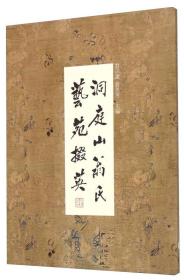 洞庭山翁氏
藝苑掇英